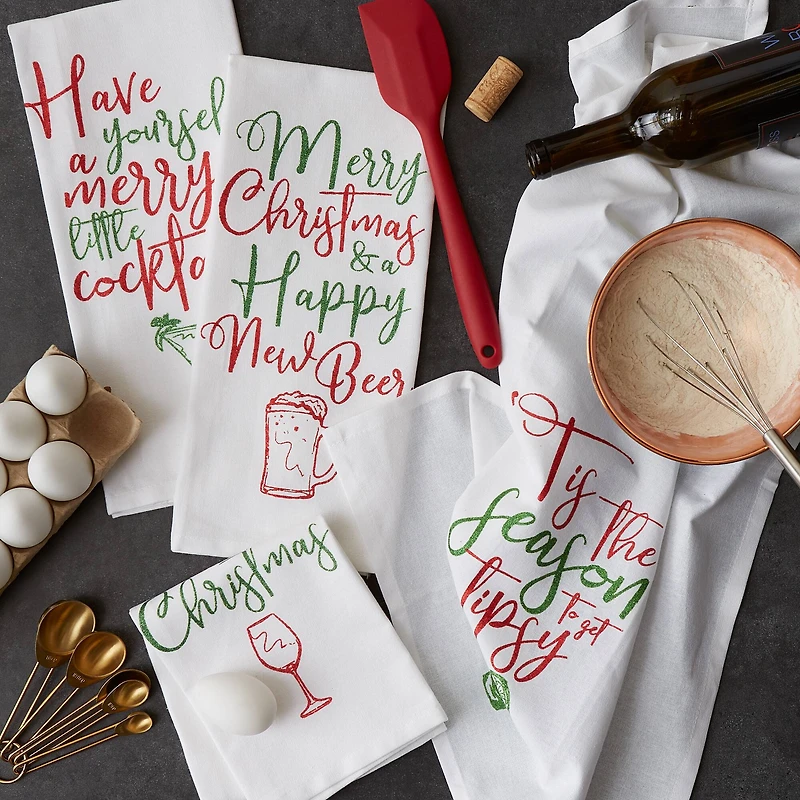 Have
yourself
a
merry
little
cockta
Merry
Christmas
& a
Happy
New Beer
'Tis
The
season
to get
tipsy
Christmas